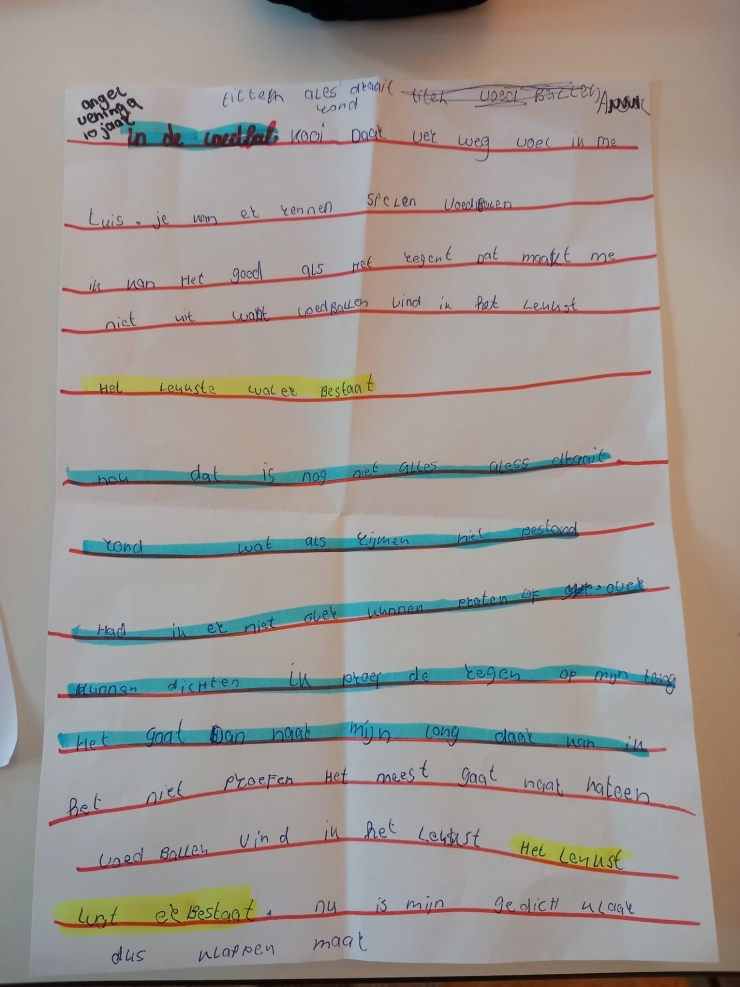 angel veninga 10 jaar
titteln ales draait rond
in de voedbal kooi daar ver weg voel ik me
tuis. je kan er rennen spelen voedballen
ik kan het good als het regent dat maakt me
niet uit want voedballen vind ik het leukst
Het leukste wat er Bestaat
nou dat is nog niet alles aless draait
rond wat als rijmen niet bestond
Had ik er niet over kunnen praten of over
kunnen dichten ik proef de regen op mijn tong
Het gaat Dan naar mijn long daar kan ik
het niet proefen Het meest gaat naar hateen
voed Ballen vind ik het Leukst Het Leukst
wat er Bestaat. nu is mijn gedicht klaar
dus klappen maar